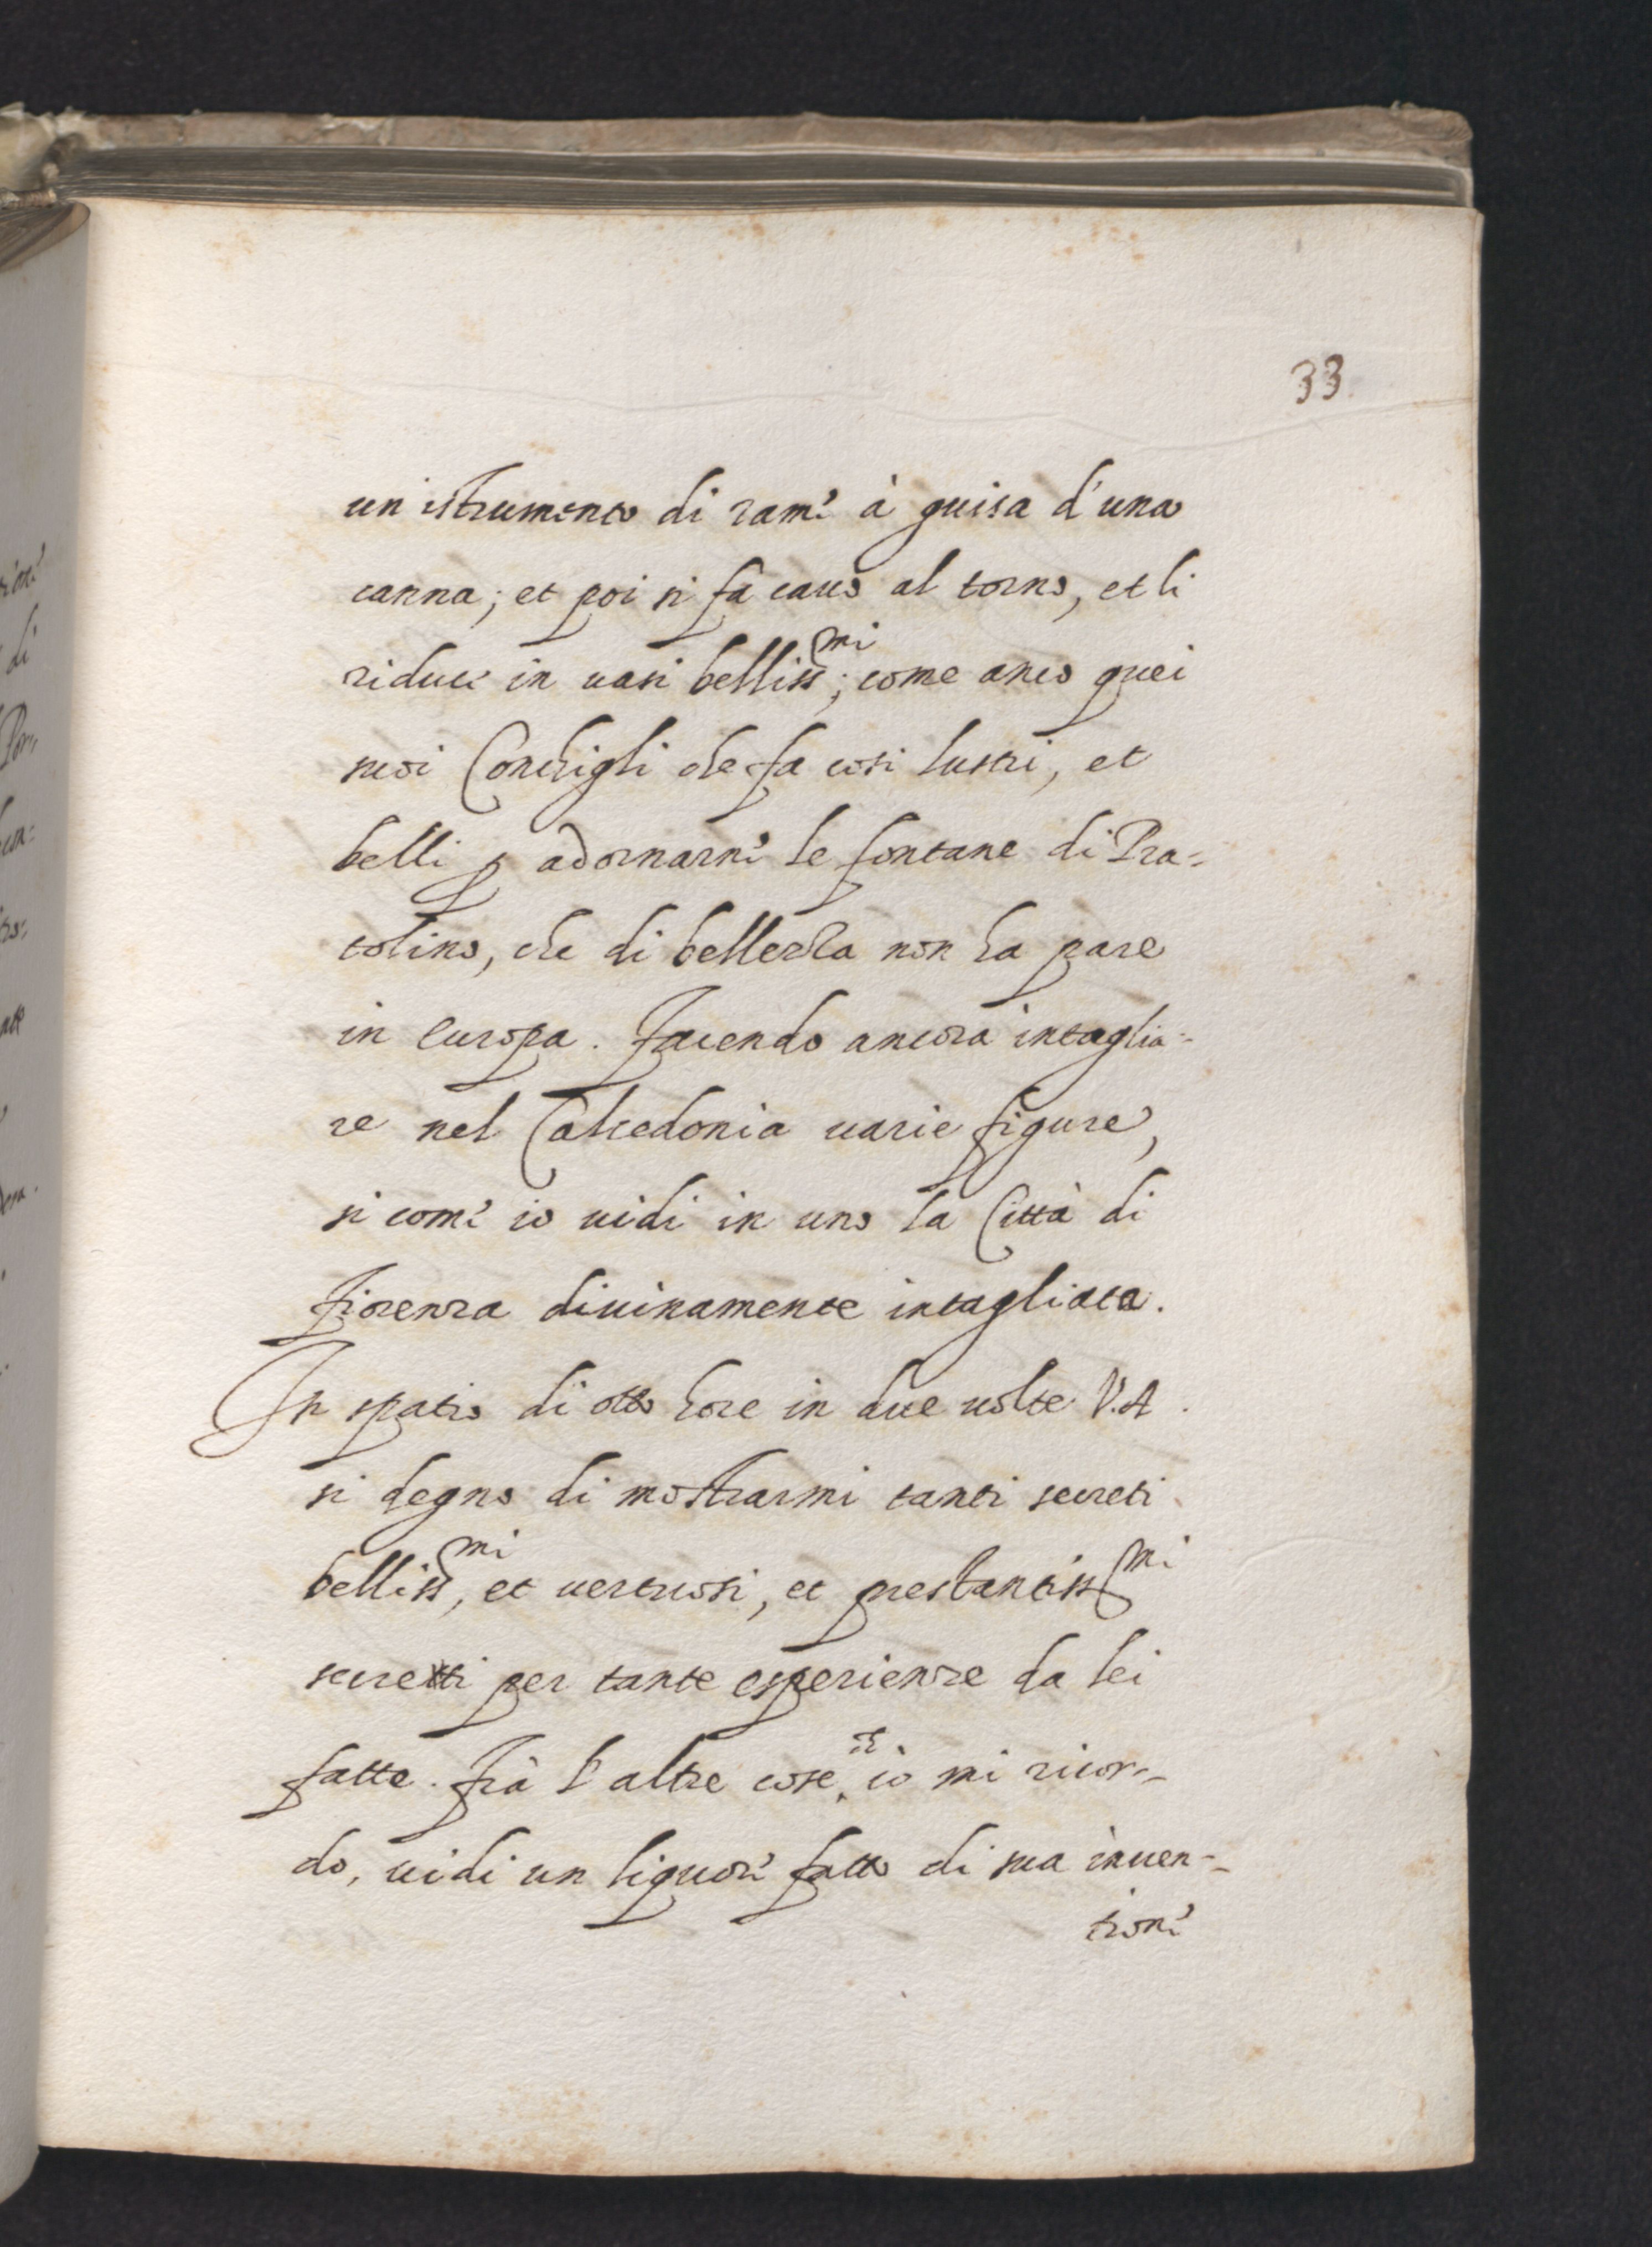 33
un istrumento di rame à guisa d'una
canna; et poi si fa cauo al torno, et li
riduce in uasi belliss^mi; come anco quei
suoi Conchigli che fa cosi lustri, et
belli p adornarne le fontane di Pra=
tolino, che di bellezza non ha pare
in europa. Facendo ancora intaglia=
re nel Calcedonia uarie figure,
si come io uidi in uno la Città di
Fiorenza diuinamente intagliata.
In spatio di otto hore in due uolte V.A.
si degno di mostrarmi tanti secreti
belliss^mi, et uertuosi, et prestantiss^mi
secretti per tante esperienze da lei
fatte. Frà l'altre cose, io mi ricor=
do, uidi un liquore fatto di sua inuen=
tione